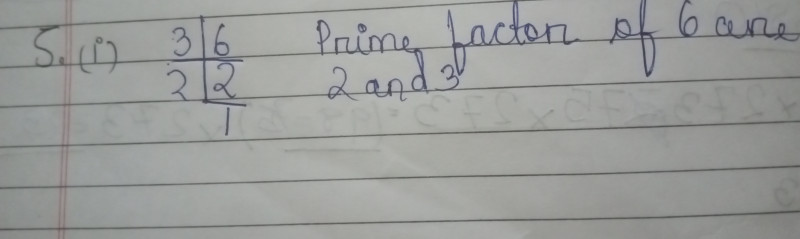 5. (i) 3 | 6 Prime factor of 6 are
2 | 2 2 and 3
1